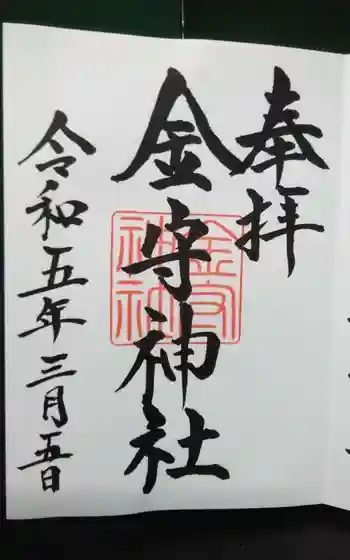 奉拝
金守神社
金守
神社
令和五年三月五日